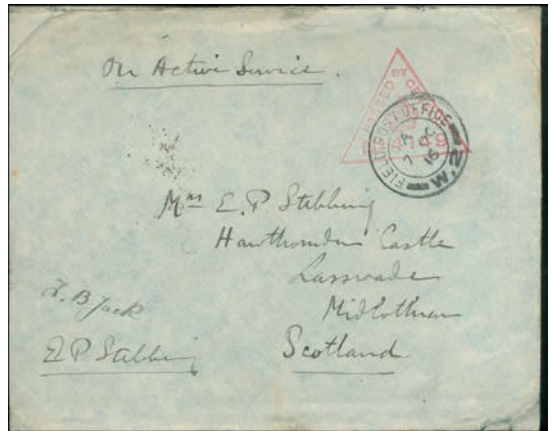 On Active Service.
PASSED BY
FIELD POST OFFICE
W.2
Mrs E. P. Stebbing
Hawthornden Castle
Lasswade
Midlothian
Scotland
B Jack
E P Stebbing